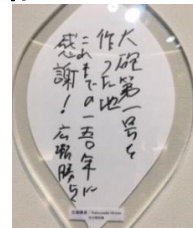 大砲第一号を
作った地
これまでの一五〇年に
感謝！広瀬勝貞